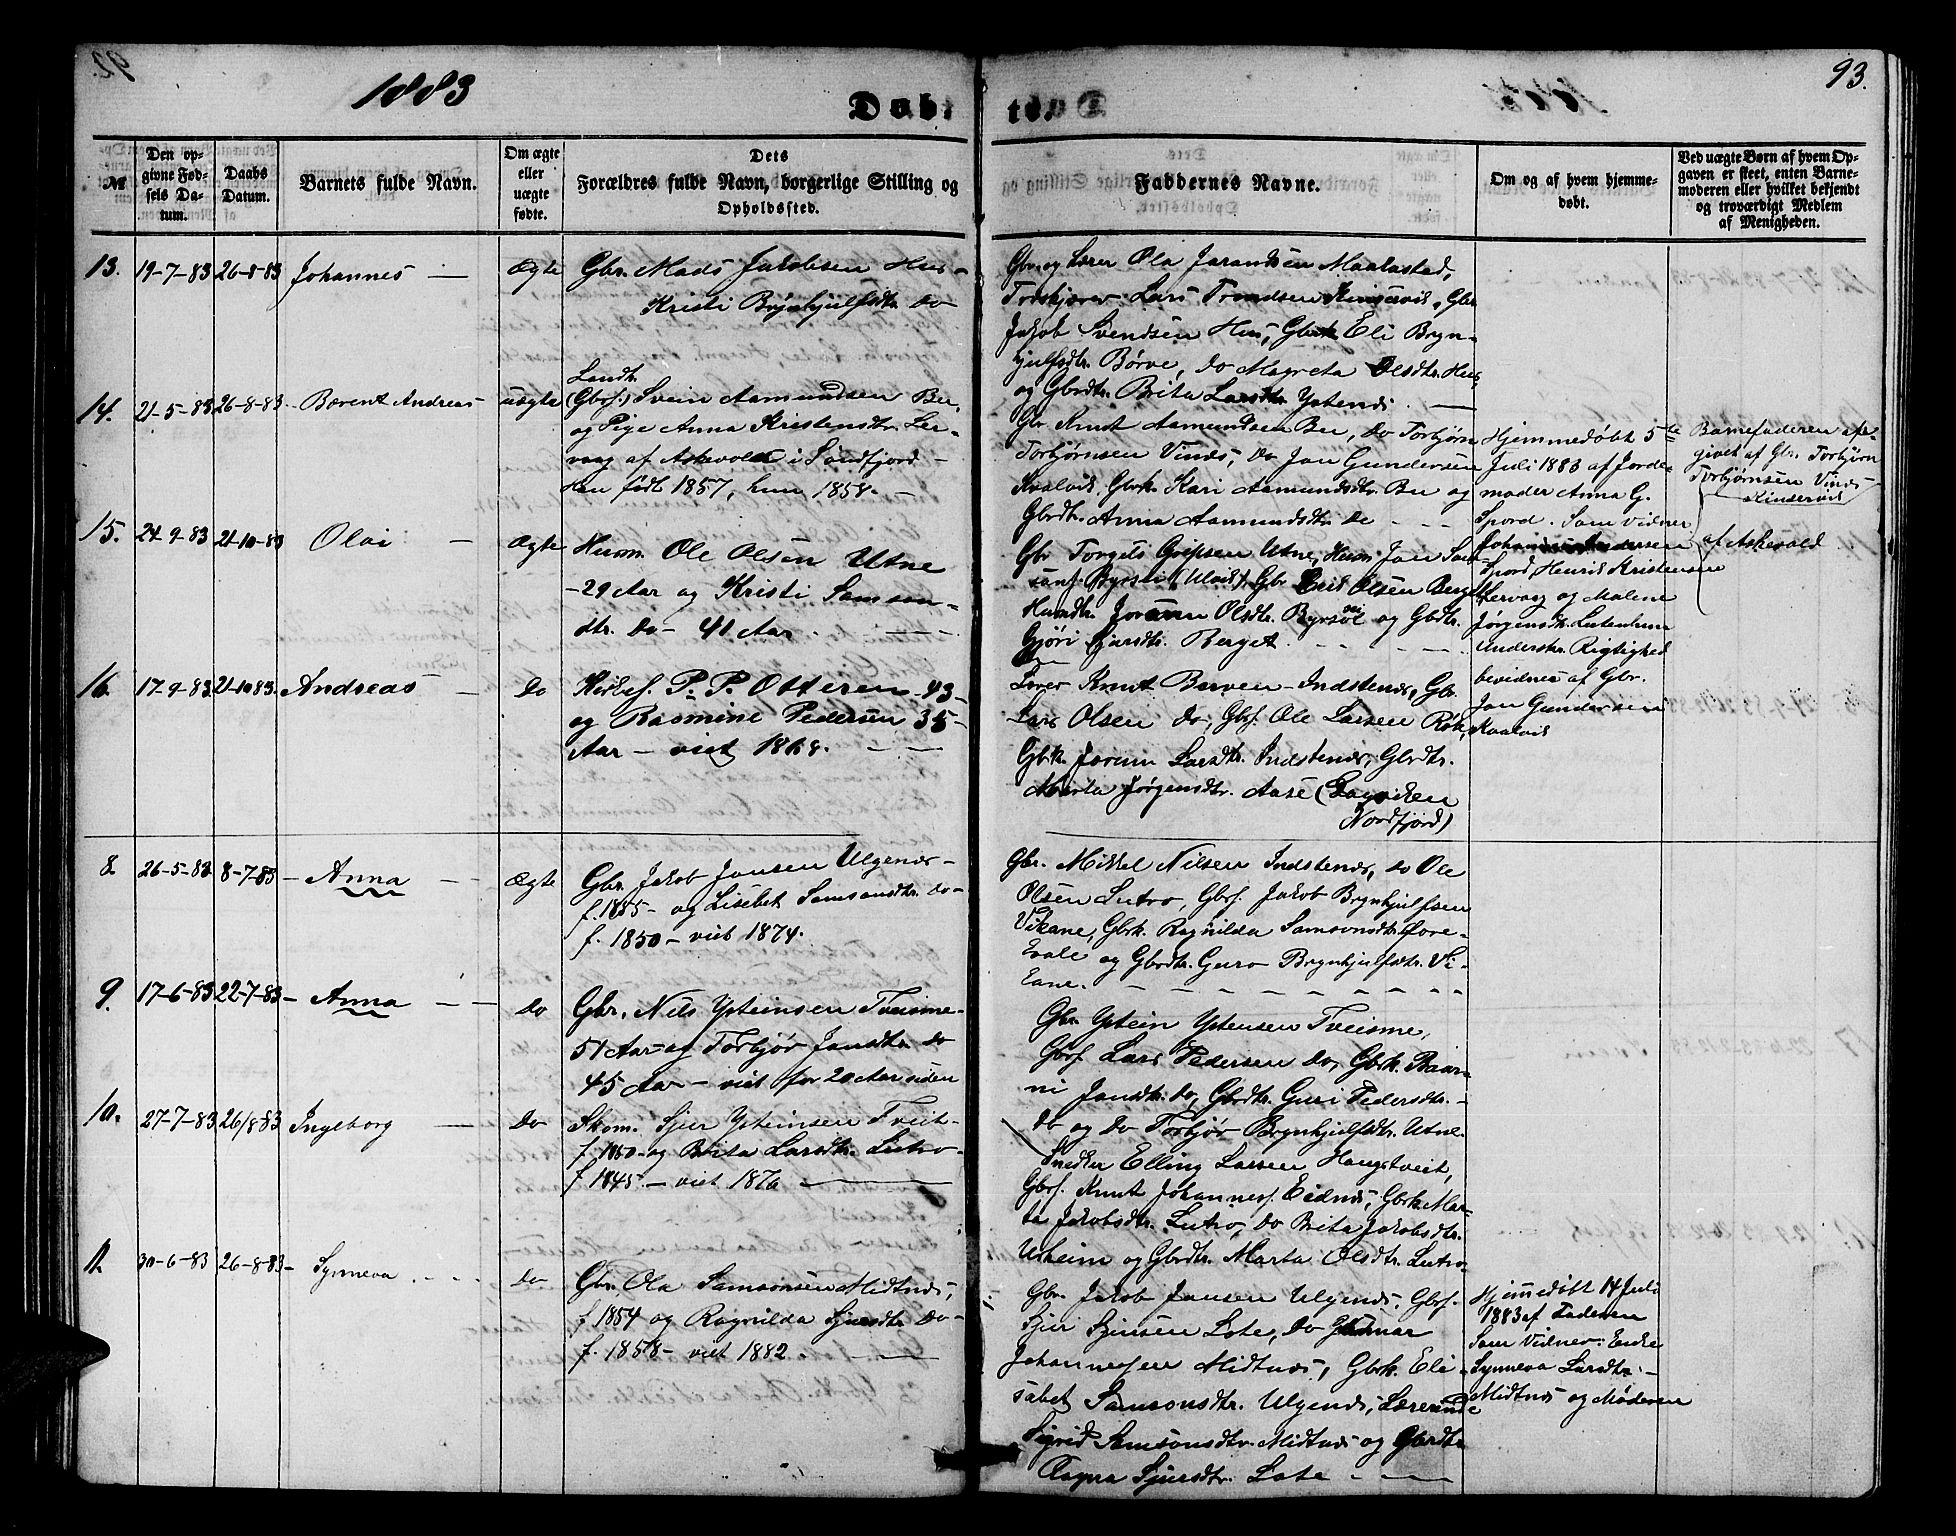 1883
Døbte.
93.
№
Den opgivne Fødsels Datum.
Daabs Datum.
Barnets fulde Navn.
Om ægte eller uægte fødte.
Dets Forældres fulde Navn, borgerlige Stilling og Opholdssted.
Faddernes Navne.
Om og af hvem hjemmedøbt.
Ved uægte Børn af hvem Opgaven er skeet, enten Barnemoderen eller hvilket bekjendt og troværdigt Medlem af Menigheden.
13. 19-7-83 26-8-83 Johannes — Ægte
Gbr. Mads Jakobsen Hus-
Kristi Brynhjulfsdtr. do
Gbr. og Lærer Ola Jarandsen Maakestad,
Lars Trondsen Kinservik, Gbr.
Jakob Svendsen Hus, Gbrk. Eli Bryn-
hjulfsdtr. Børve, do Magreta Olsdtr. Hus
og Gbrdtr. Brita Larsdtr. Ystenes. —
14. 21-5-83 26-8-83 Berent Andreas uægte
Landh.
(Gbrs.) Svein Aamundsen Bu,
og Pige Anna Kristensdtr. Ler-
vaag af Askevold i Søndfjord —
Han født 1857, hun 1858. —
Gbr. Knut Aamundsen Bu, do Torbjørn
Torbjørnsen Vines, do Jon Gundersen
Kvalvik, Gbrk. Kari Aamundsdtr. Bu og
Gbrdtr. Anna Aamundsdtr. do - - -
Hjemmedøbt 5te
Juli 1883 af Jorde-
moder Anna G.
Spord. Som vidner
Johannes Andersen
Spord, Henrik Kristensen
Lervaag og Malene
Jørgensdtr. Lutenhun
Underskr. Rigtighed
bevidnes af Gbr.
Jon Gundersen
Kvalvik
Barnefaderen op-
givet af Gbr. Torbjørn
Torbjørnsen Vines
Kinservik
af Askevold
15. 24-9-83 21-10-83 Olai — Ægte
Husm. Ole Olsen Utne
-29 Aar og Kristi Samson-
dtr. do- 41 Aar. - - -
Gbr Torgils Gripsen Utne, Husm. Jon Sam-
sons. Byrsøl (Ulvik), Gbr Erik Olsen Berget
Husmdtr. Joraann Olsdtr. Byrsøl og Gbdtr.
Gjøri Sjursdtr. Berget. - - - -
16. 17-9-83 21-10-83. Andreas — do
P. P. Otteren 43-
og Rasmine Pedersen 35-
Aar — viet 1868. — —
Lærer Knut Berven Indstenes, Gbr.
Lars Olsen do, Gbrs. Ole Larsen
Gbrk. Jorunn Larsdtr. Indstenes, Gbrdtr.
Marta Jørgensdtr. Aase (Davicken
Nordfjord)
8 26-5-83 8-7-83 — Anna — — Ægte
Gbr. Jakob Jonsen Ulgenes —
f. 1855- og Lisebet Samsonsdtr. do-
f. 1850 — viet 1874.
Gbr. Mikkel Nilsen Indstenes, do Ole
Olsen Lutro, Gbrs. Jakob Brynhjulfsen
Vikane, Gbrk. Ragnilda Samsonsdtr.
og Gbrdtr. Guro Brynhjulfsdtr. Vi-
kane. - - - - - - - -
9. 17-6-83 22-7-83 — Anna — — do
Gbr. Nils Ysteinsen Tveisme-
51 Aar og Torbjør Jonsdtr. do
45 Aar — viet for 20 Aar siden
Gbr. Ystein Ystensen Tveisme,
Gbrs. Lars Pedersen do, Gbrk.
Jonsdtr. do, Gbrdtr. Guri Pedersdtr. -
do og do Torbjør Brynhjulfsdtr. Utne.
10. 27-7-83 26/8 83 Ingeborg — do
Skom. Sjur Ysteinsen Tveit-
f. 1850 og Brita Larsdtr. Lutro-
f. 1845. — viet 1876 —
Snedker Elling Larsen Haugstveit,
Gbrs. Knut Johannes. Eidnes, Gbrk. Mar-
ta Jakobsdtr. Lutro, do Brita Jakobsdtr.
Utheim og Gbrdtr. Marta Olsdtr. Lutro.
11. 30-6-83 26-8-83 — Synneva - - - do
Gbr. Ola Samsonsen Midtnes,
f 1854 og Ragnilda Sjursdtr. do-
f. 1858 — viet 1882. —
Gbr. Jakob Jonsen Ulgenes, Gbrs.
Sjur Sjursen Lote, do Gunnar
Johannessen Midtnes, Gbrk. Eli-
sabet Samsonsdtr. Ulgenes, Lærerinde
Sigrid Samsonsdtr. Midtnes og Gbrdtr.
Ragna Sjursdtr. Lote - - -
Hjemmedøbt 14 Juli
1883 af Faderen
Som Vidner: Enke
Synneva Larsdtr. -
Midtnes og Moderen